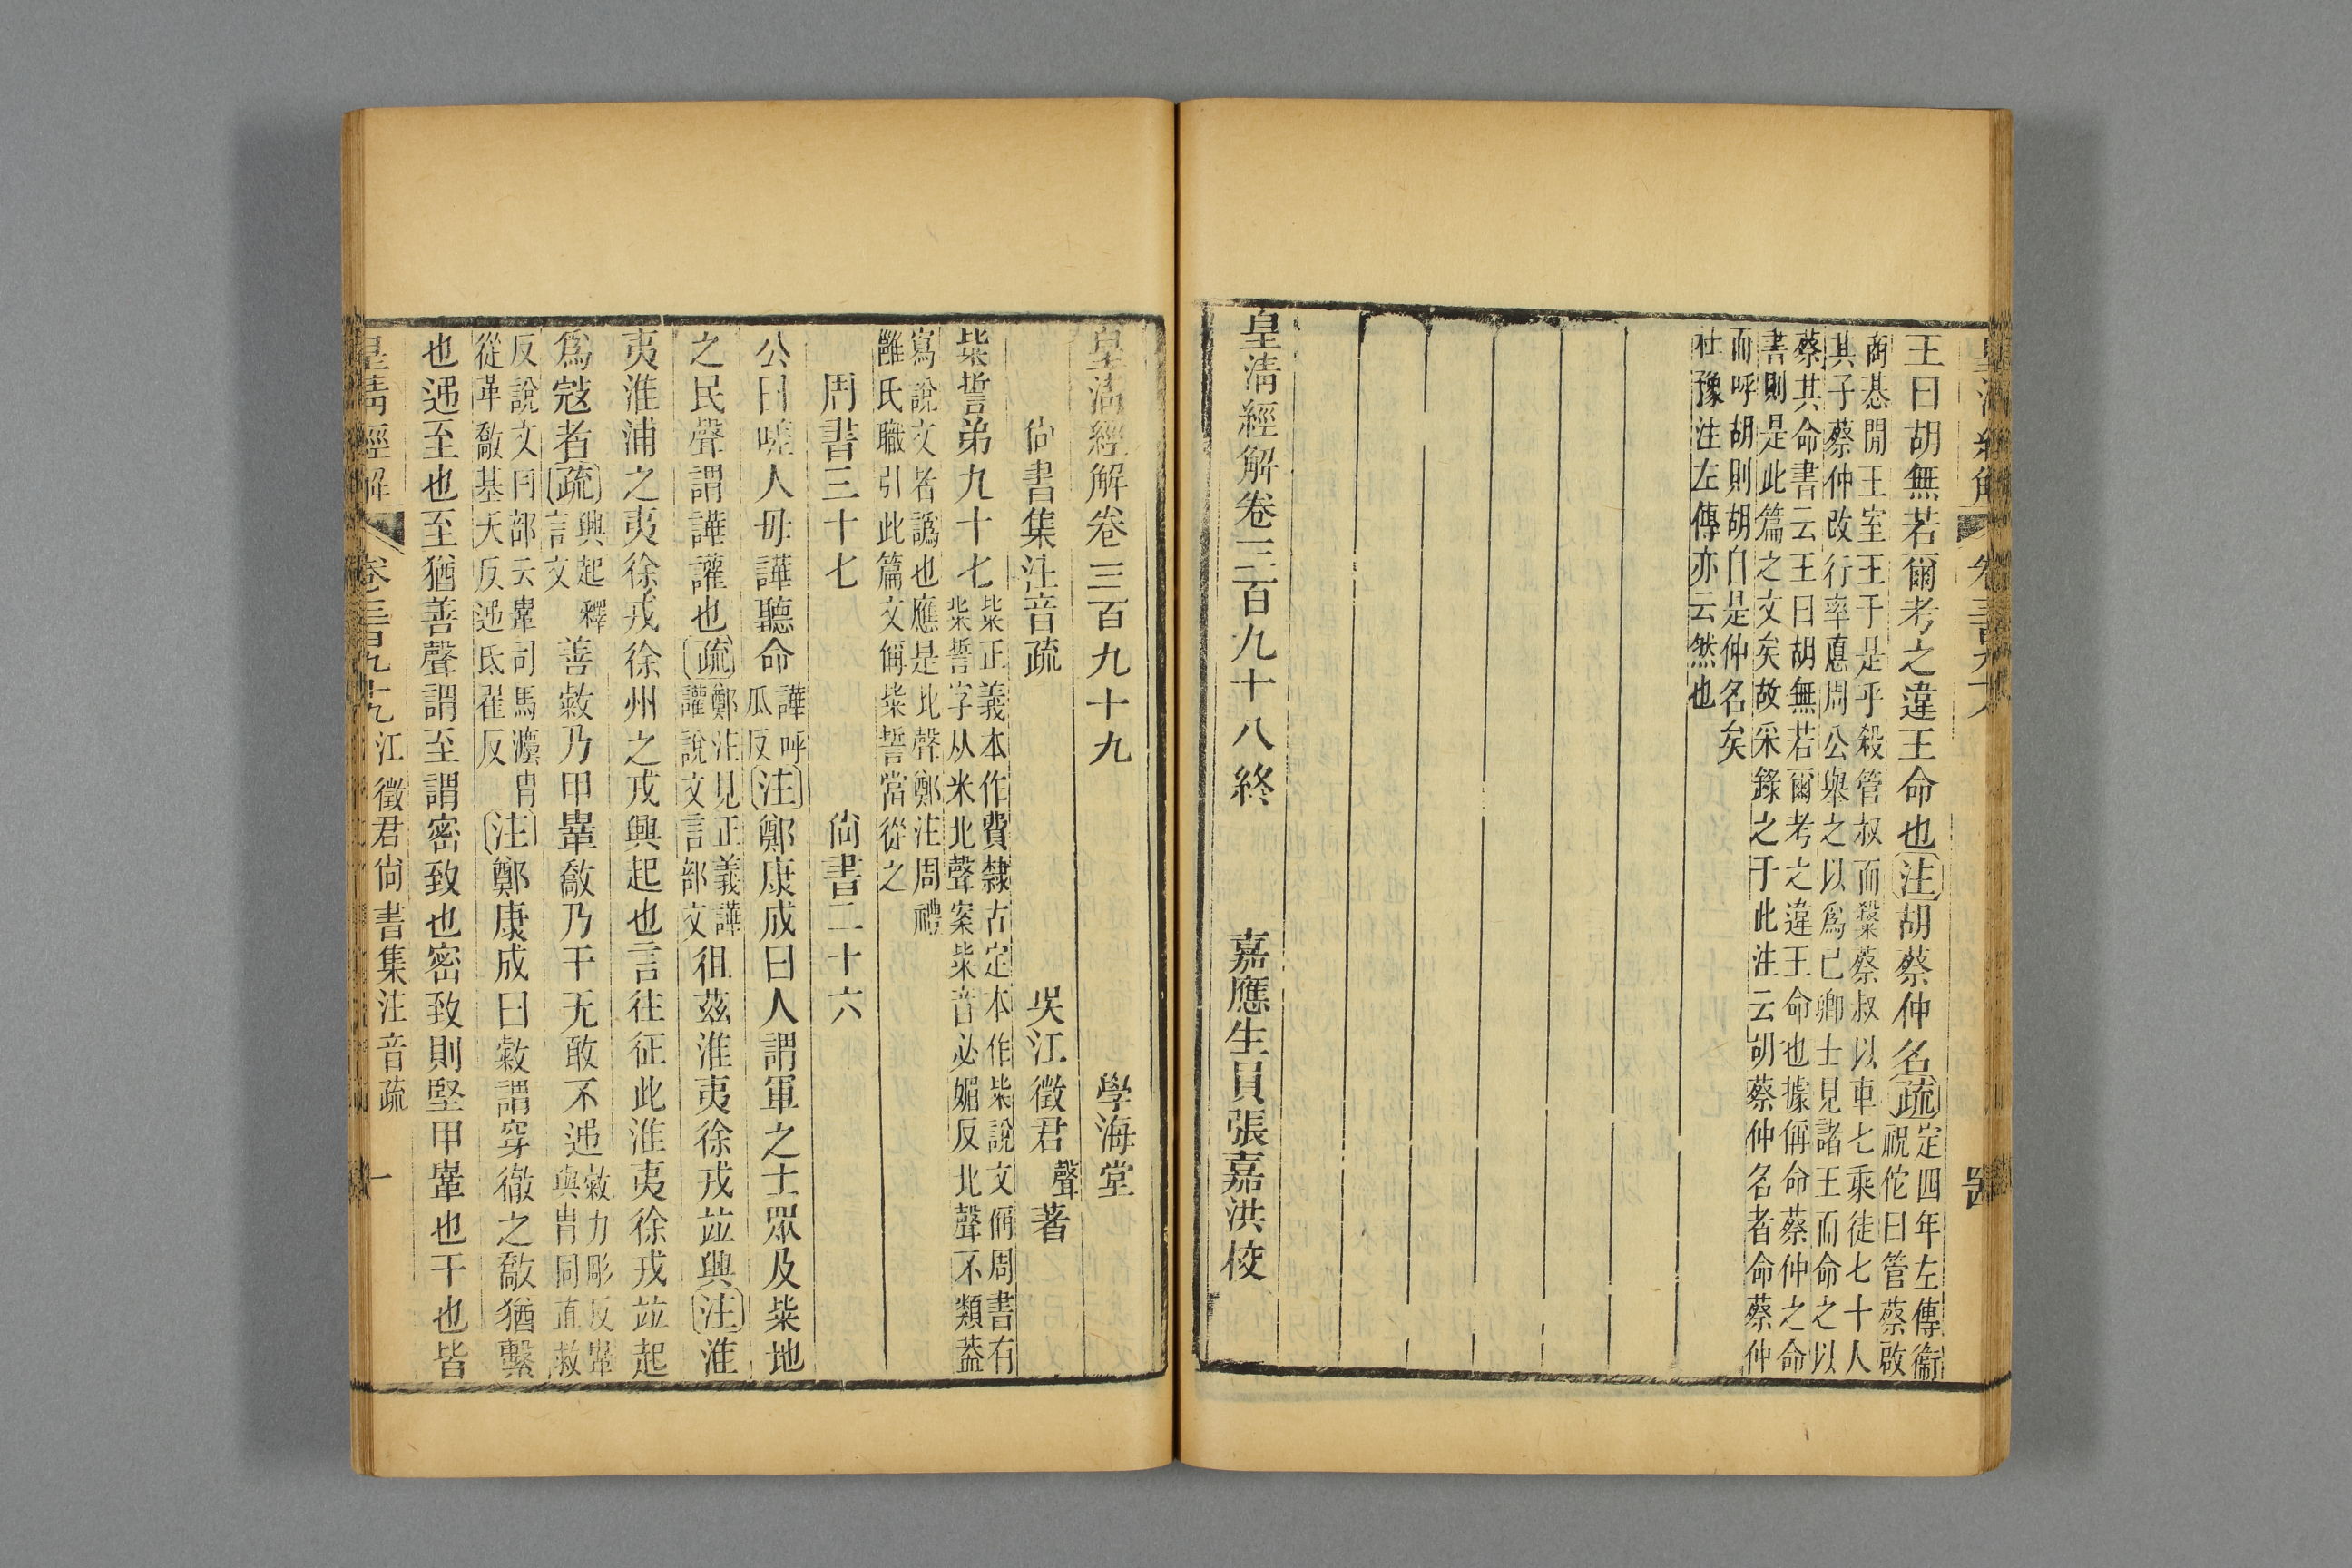 王曰胡無若爾考之違王命也注胡蔡仲名疏定四年左傳衞
祝佗曰管蔡啟
商惎閒王室王于是乎殺管叔而蔡蔡叔以車七乘徒七十人
其子蔡仲改行率悳周公舉之以爲己卿士見諸王而命之以
蔡其命書云王曰胡無若爾考之違王命也據偁命蔡仲之命
書則是此篇之文矣故采錄之于此注云胡蔡仲名者命蔡仲
而呼胡則胡自是仲名矣
杜豫注左傳亦云然也
皇淸經解卷三百九十八終 嘉應生員張嘉洪校
皇淸經解卷三百九十九 學海堂
尙書集注音疏 吳江徵君聲著
粊誓弟九十七粊正義本作費隸古定本作粊說文偁周書有
粊誓字从米北聲案粊音必媚反北聲不類葢
寫說文者譌也應是比聲鄭注周禮
雝氏職引此篇文偁粊誓當從之
周書三十七 尙書二十六
公曰嗟人毋譁聽命譁呼
瓜反注鄭康成曰人謂軍之士眾及粊地
之民聲謂譁讙也疏鄭注見正義譁
讙說文言部文徂茲淮夷徐戎竝興注淮
夷淮浦之夷徐戎徐州之戎興起也言往征此淮夷徐戎竝起
爲寇者疏興起釋
言文善敹乃甲冑敿乃干无敢不遜敹力彫反
與冑同直救
反說文冃部云冑司馬灋冑
從革敿基夭反注鄭康成曰敹謂穿徹之敿猶繫
也遜至也至猶善聲謂至謂密致也密致則堅甲冑也干也皆
皇淸經解 卷三百九十九 江徵君尙書集注音疏 一